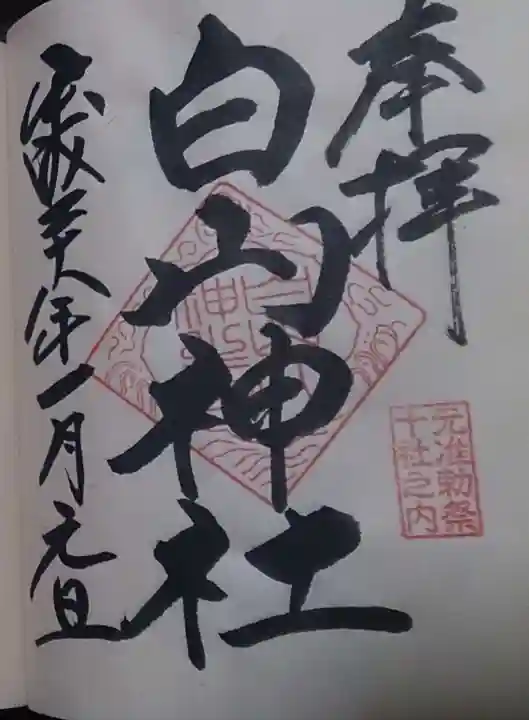 奉拝
白山神社
平成二十八年一月元旦
元准勅祭
十社之内